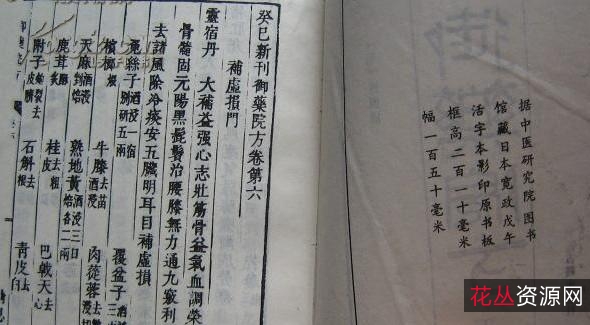 据中医研究院图书
馆藏日本宽政戊午
活字本影印原书板
框高二百一十毫米
幅一百五十毫米
癸巳新刊御藥院方卷第六
補虛損門
靈宿丹 大補益强心志壯筋骨益氣血調榮
骨髓固元陽黑髭鬢治腰膝無力通九竅利
去諸風除冷痰安五臟明耳目補虛損
菟絲子酒浸一宿别研五兩 覆盆子
檳榔 牛膝去苗酒浸 肉蓯蓉酒浸
天麻酒浸 熟地黃酒浸三日焙各二兩
鹿茸 桂去粗皮 巴戟去心
附子炮裂去皮臍 石斛去根 青皮去白
花丛资源网